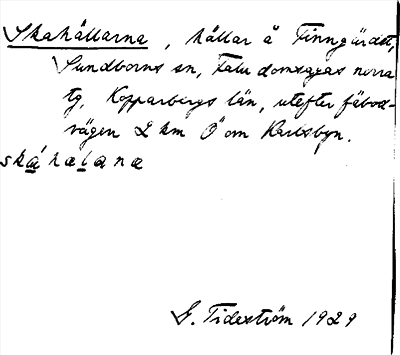 Skahällarna, hällar å Finngärdet,
Sundborns sn, Falu domsagas norra
tg, Kopparbergs län, utefter fäbod-
vägen 2 km Ö om Karlsbyn.
skáhälana
G. Tideström 1929